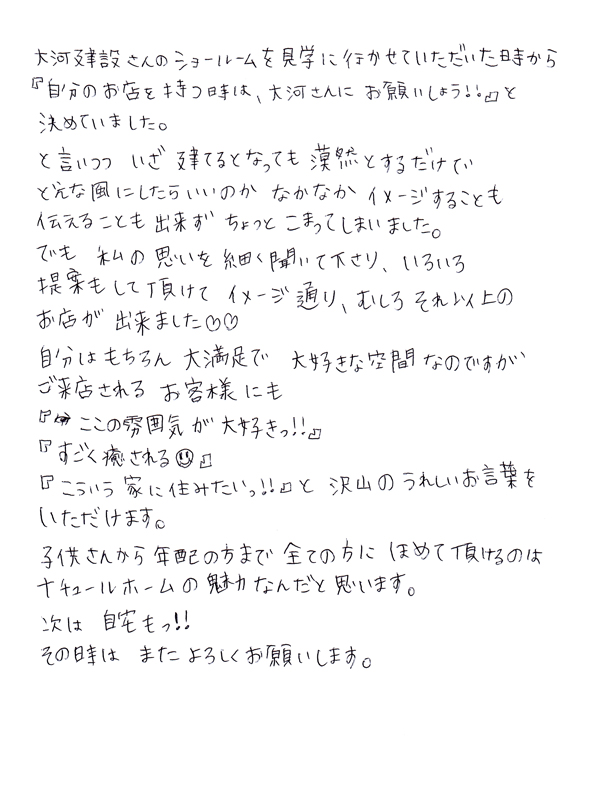 大河建設さんのショールームを見学に行かせていただいた時から
『自分のお店を持つ時は、大河さんに お願いしよう!!』と
決めていました。
と言いつつ いざ 建てるとなっても 漠然とするだけで
どんな風にしたらいいのか なかなか イメージすることも
伝えることも 出来ず ちょっと こまってしまいました。
でも 私の 思いを 細く聞いて下さり、いろいろ
提案もして頂けて イメージ通り、むしろ それ以上の
お店が 出来ました♡♡
自分はもちろん 大満足で 大好きな空間なのですが
ご来店される お客様にも
『ここの雰囲気が 大好きっ!!』
『すごく癒される☺』
『こういう 家に住みたいっ!!』と 沢山の うれしいお言葉を
いただけます。
子供さんから 年配の方まで 全ての方に ほめて頂けるのは
ナチュールホームの 魅力なんだと 思います。
次は 自宅もっ!!
その時は また よろしくお願いします。